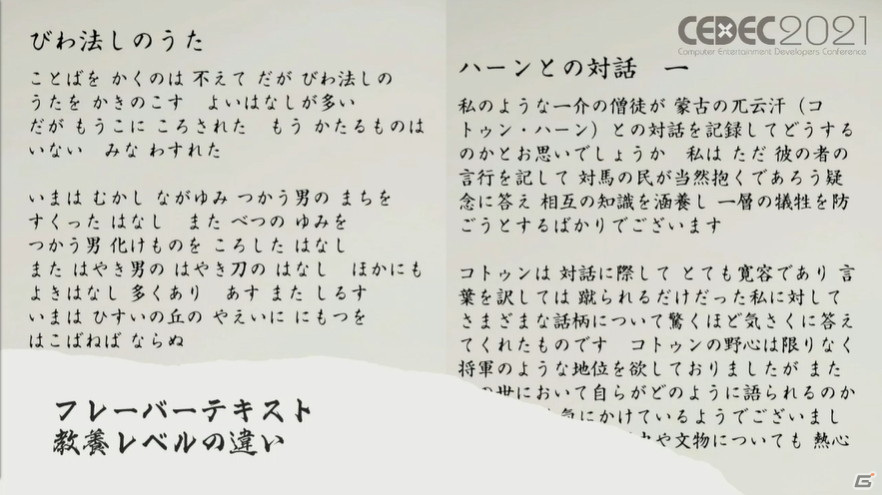 びわ法しのうた
ことばを かくのは 不えて だが びわ法しの
うたを かきのこす よいはなしが多い
だが もうこに ころされた もう かたるものは
いない みな わすれた
いまは むかし ながゆみ つかう男の まちを
すくった はなし また べつの ゆみを
つかう男 化けものを ころした はなし
また はやき男の はやき刀の はなし ほかにも
よきはなし 多くあり あす また しるす
いまは ひすいの丘の やえいに にもつを
はこばねば ならぬ
フレーバーテキスト
教養レベルの違い
CEDEC2021
Computer Entertainment Developers Conference
ハーンとの対話 一
私のような一介の僧徒が 蒙古の兀云汗(コ
トゥン・ハーン)との対話を記録してどうする
のかとお思いでしょうか 私は ただ 彼の者の
言行を記して 対馬の民が当然抱くであろう疑
念に答え 相互の知識を涵養し 一層の犠牲を防
ごうとするばかりでございます
コトゥンは 対話に際して とても寛容であり 言
葉を訳しては 蹴られるだけだった私に対して
さまざまな話柄について驚くほど気さくに答え
てくれたものです コトゥンの野心は限りなく
将軍のような地位を欲しておりましたが また
の世において自らがどのように語られるのか
にかけているようでございまし
や文物についても 熱心